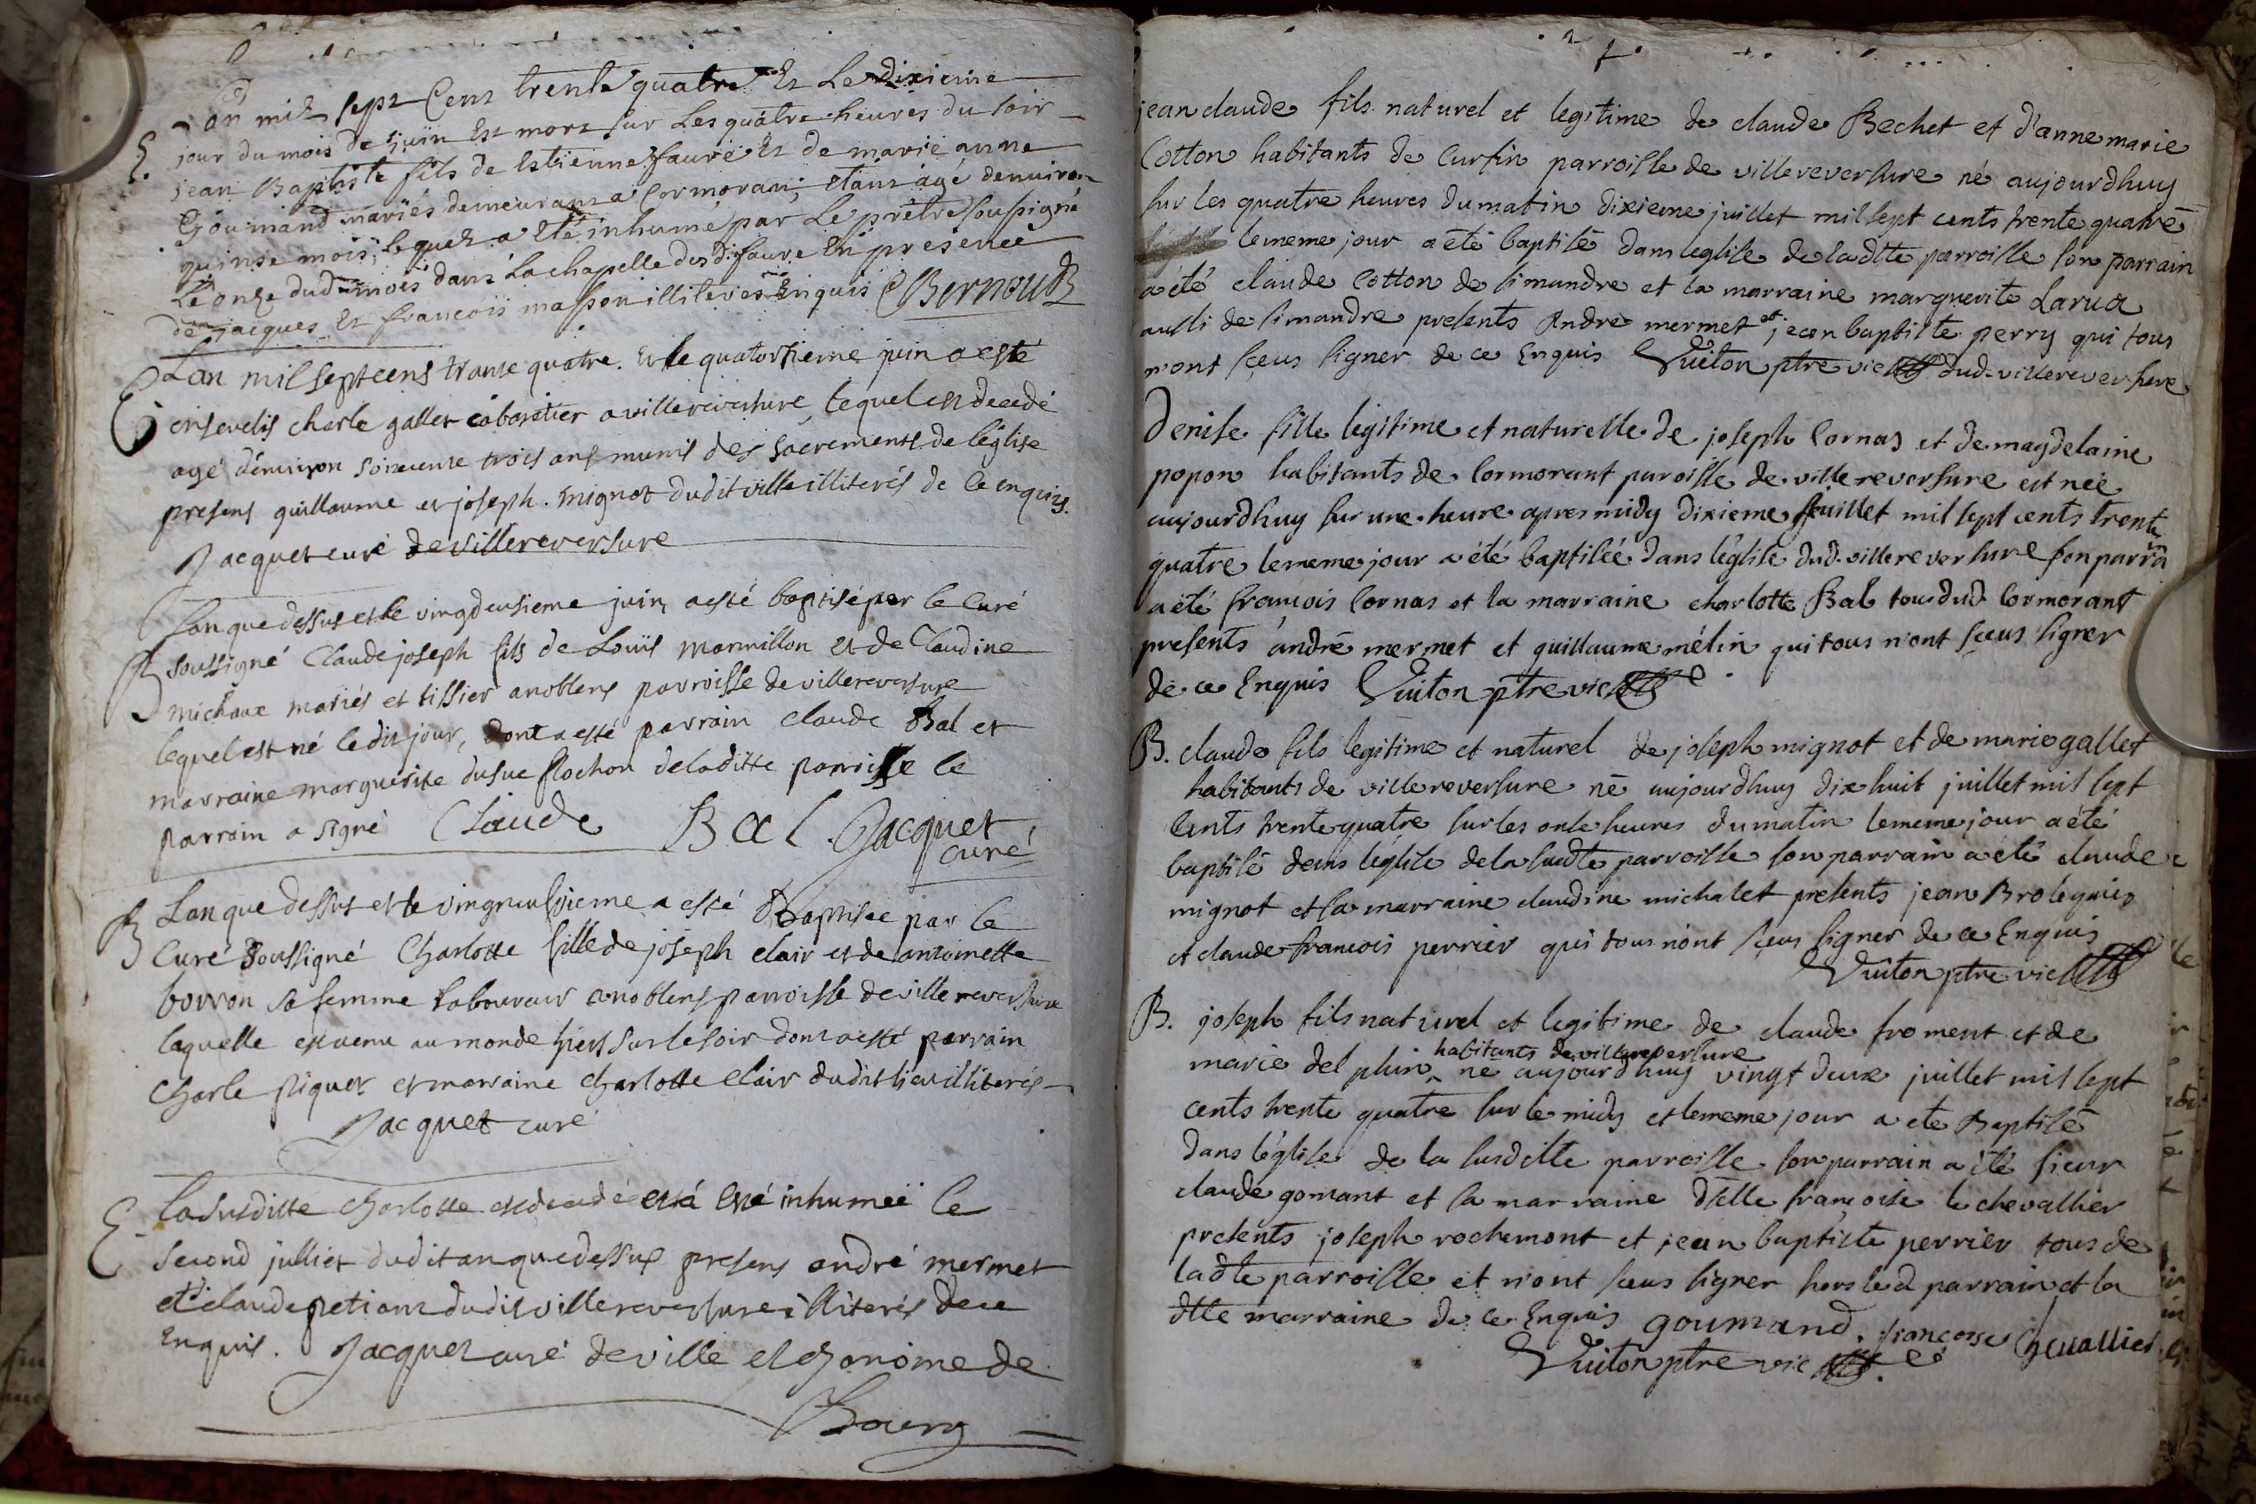 E.
Lan mil sept Cent trente quatre Et Le dixieme
jour du mois de juin Est mort sur Les quatre heures du soir
jean Baptiste fils de Estienne faure Et de marie anne
Goumand mariés demeurans a Cormoran; etant agé denviron
quinse mois; lequel a eté inhumé par Le prêtre soussigné
Le onze dud mois dans La chapelle des dts faure En presence
de jacques Et francois masson illiterés Enquis CBernoud
E
Lan mil sept cens trante quatre. et le quatorsieme juin a esté
ensevelis charle gallet cabaretier a villereversure, lequel en decedé
agé d'environ soixcente trois ans munis des sacrements de léglise
presens guillaume et joseph. mignot dudit ville illiterés de ce enquis.
Jacquet curé de villereversure
B
Lan que dessus et le vingdeusieme juin, a esté baptisé par le Curé
soussigné Claude joseph fils de Loüis marmillon et de Claudine
michaux mariés et tissier a noblens parroisse de villereversure
lequel est né le dit jour, dont a esté parrain Claude Bal et
marraine marguerite dusuc flochon de la ditte parroisse le
parrain a signé Claude Bal Jacquet
curé
B
Lan que dessus et le vingneufvieme a esté Baptisee par le
Curé soussigné Charlotte fille de joseph clair et de antoinette
borron sa femme laboureur a noblens parroisse de villereversure
laquelle est venu au monde hiers sur le soir dont a esté parrain
Charle piquet et marraine Charlotte clair dudit lieu illiterés
Jacquet curé
E
La susditte charlotte est decedé et a esté inhumeé le
second julliet dudit an que dessus presens andré mermet
et claude petiant dudit villereversure illiterés de ce
Enquis. Jacquet curé de ville et chanoine de
Bourg
jean claude fils naturel et legitime de claude Bechet et d'anne marie
Cotton habitants de Cursin parroisse de villereversure né aujourdhuy
sur les quatre heures du matin dixieme juillet mil sept cents trente quatre
le meme jour a été baptisé dans leglise de ladtte parroisse son parrain
a été claude Cotton de simandre et la marraine marguerite Larua
aussi de simandre presents Andre mermet et jean baptiste perry qui tous
n'ont sçeus signer de ce Enquis Vuiton ptre vic dud. villereversure
Denise fille legitime et naturelle de joseph Cornas et de magdelaine
popon habitants de Cormorant paroisse de villereversure est née
aujourdhuy sur une heure apres midy dixieme juillet mil sept cents trente
quatre le meme jour a été baptiséé dans l'église dud. villereversure son parrain
a été francois Cornas et la marraine charlotte Bal tous dud. Cormorant
presents andré mermet et guillaume mélin qui tous n'ont sçeus signer
de ce Enquis Vuiton ptre vic
B. claude fils legitime et naturel de joseph mignot et de marie gallet
habitants de villereversure né aujourdhuy dix huit juillet mil sept
Cents trente quatre sur les onse heures du matin le meme jour a été
baptisé dans léglise de la susdte parroisse son parrain a été claude
mignot et la marraine claudine michalet presents jean Brolequies
et claude francois perrier qui tous n'ont sçeus signer de ce Enquis
Vuiton ptre vic
B. joseph fils naturel et legitime de claude froment et de
habitants de villereversure
marie del phin né aujourdhuy vingt deux juillet mil sept
cents trente quatre sur le midy et le meme jour a ete Baptisé
dans l'église de la susditte parroisse son parrain a été sieur
claude gomant et la marraine dselle francoise le chevallier
presents joseph rochemont et jean baptiste perrier tous de
la dte parroisse et n'ont sçeus signer hors led parrain et la
dtte marraine de ce Enquis goumand. francoise Chevallier
Vuiton ptre vic